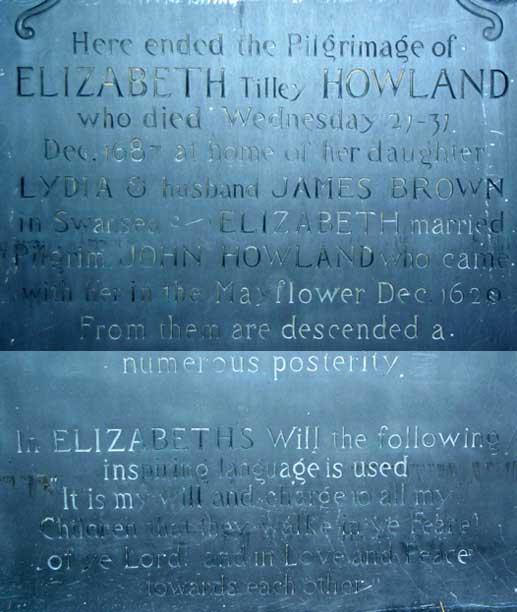 Here ended the Pilgrimage of
ELIZABETH Tilley HOWLAND
who died Wednesday 21-31
Dec. 1687 at home of her daughter
LYDIA & husband JAMES BROWN
in Swansea ~ ELIZABETH married
Pilgrim JOHN HOWLAND who came
with her in the Mayflower Dec. 1620
From them are descended a
numerous posterity.
In ELIZABETH'S Will the following
inspiring language is used
"It is my will and charge to all my
Children that they walke in ye Feare
of ye Lord and in Love and Peace
towards each other"